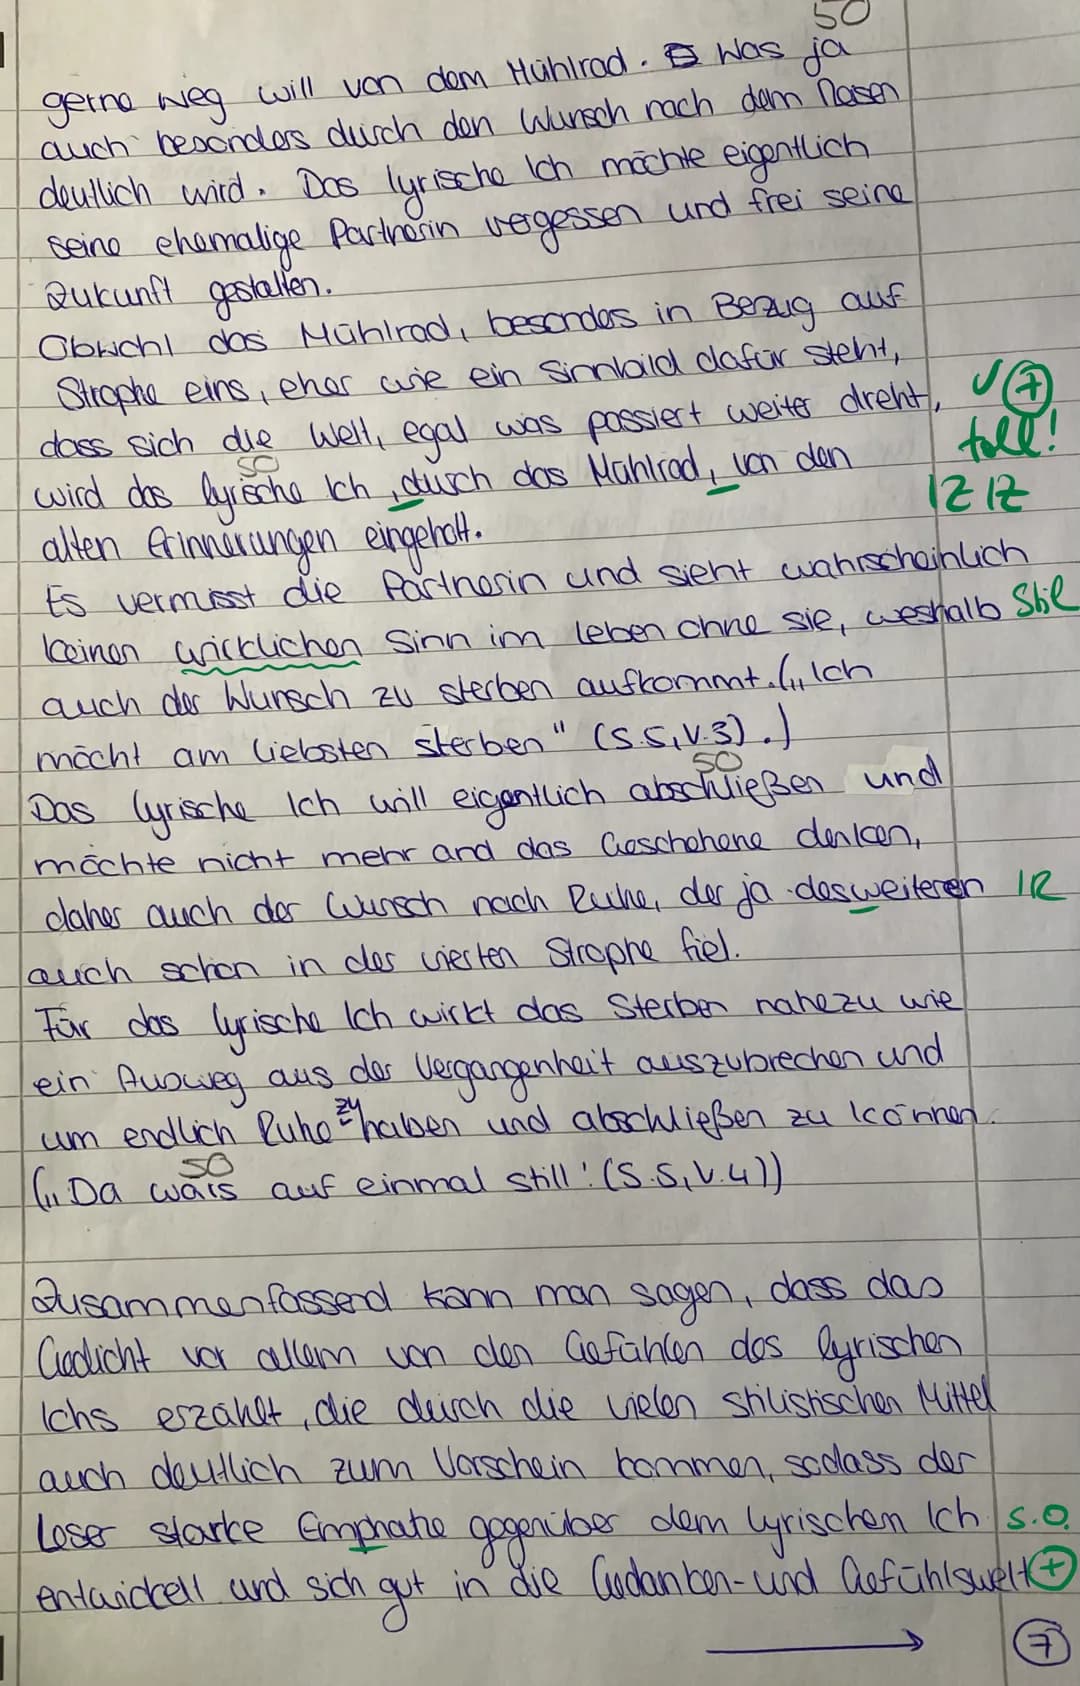 50
gerne weg will von dem Mühlrad. Was ja
auch besonders durch den Wunsch nach dem Reisen
deutlich wird. Das lyrische Ich möchte eigentlich
seine ehemalige Partnerin vergessen und frei seine
Zukunft gestalten.
Obwohl das Mühlrad, besonders in Bezug auf
Strophe eins, eher wie ein Sinnbild dafür steht,
dass sich die Welt, egal was passiert weiter dreht, √ +
toll!
50
wird das lyrische Ich, durch das Mühlrad, von den
IZ IZ
alten Erinnerungen eingeholt.
Es vermisst die Partnerin und sieht wahrscheinlich
keinen wirklichen Sinn im Leben ohne sie, weshalb Stil
auch der Wunsch zu sterben aufkommt. („Ich
möcht am liebsten sterben" (S.5, V.3).)
50
Das lyrische Ich will eigentlich abschließen und
möchte nicht mehr and das Geschehene denken,
daher auch der Wunsch nach Ruhe, der ja desweiteren IR
auch schon in der vierten Strophe fiel.
Für das lyrische Ich wirkt das Sterben nahezu wie
ein Ausweg aus der Vergangenheit auszubrechen und
um endlich Ruhe zu haben und abschließen zu können.
50
(„Da wärs auf einmal still! (S.5, V.4))
Zusammenfassend kann man sagen, dass das
Gedicht vor allem von den Gefühlen des lyrischen
Ichs erzählt, die durch die vielen stilistischen Mittel
auch deutlich zum Vorschein kommen, sodass der
Leser starke Emphatie gegenüber dem lyrischen Ich s.o.
entwickelt und sich gut in die Gedanken- und Gefühlswelt +
→ 7